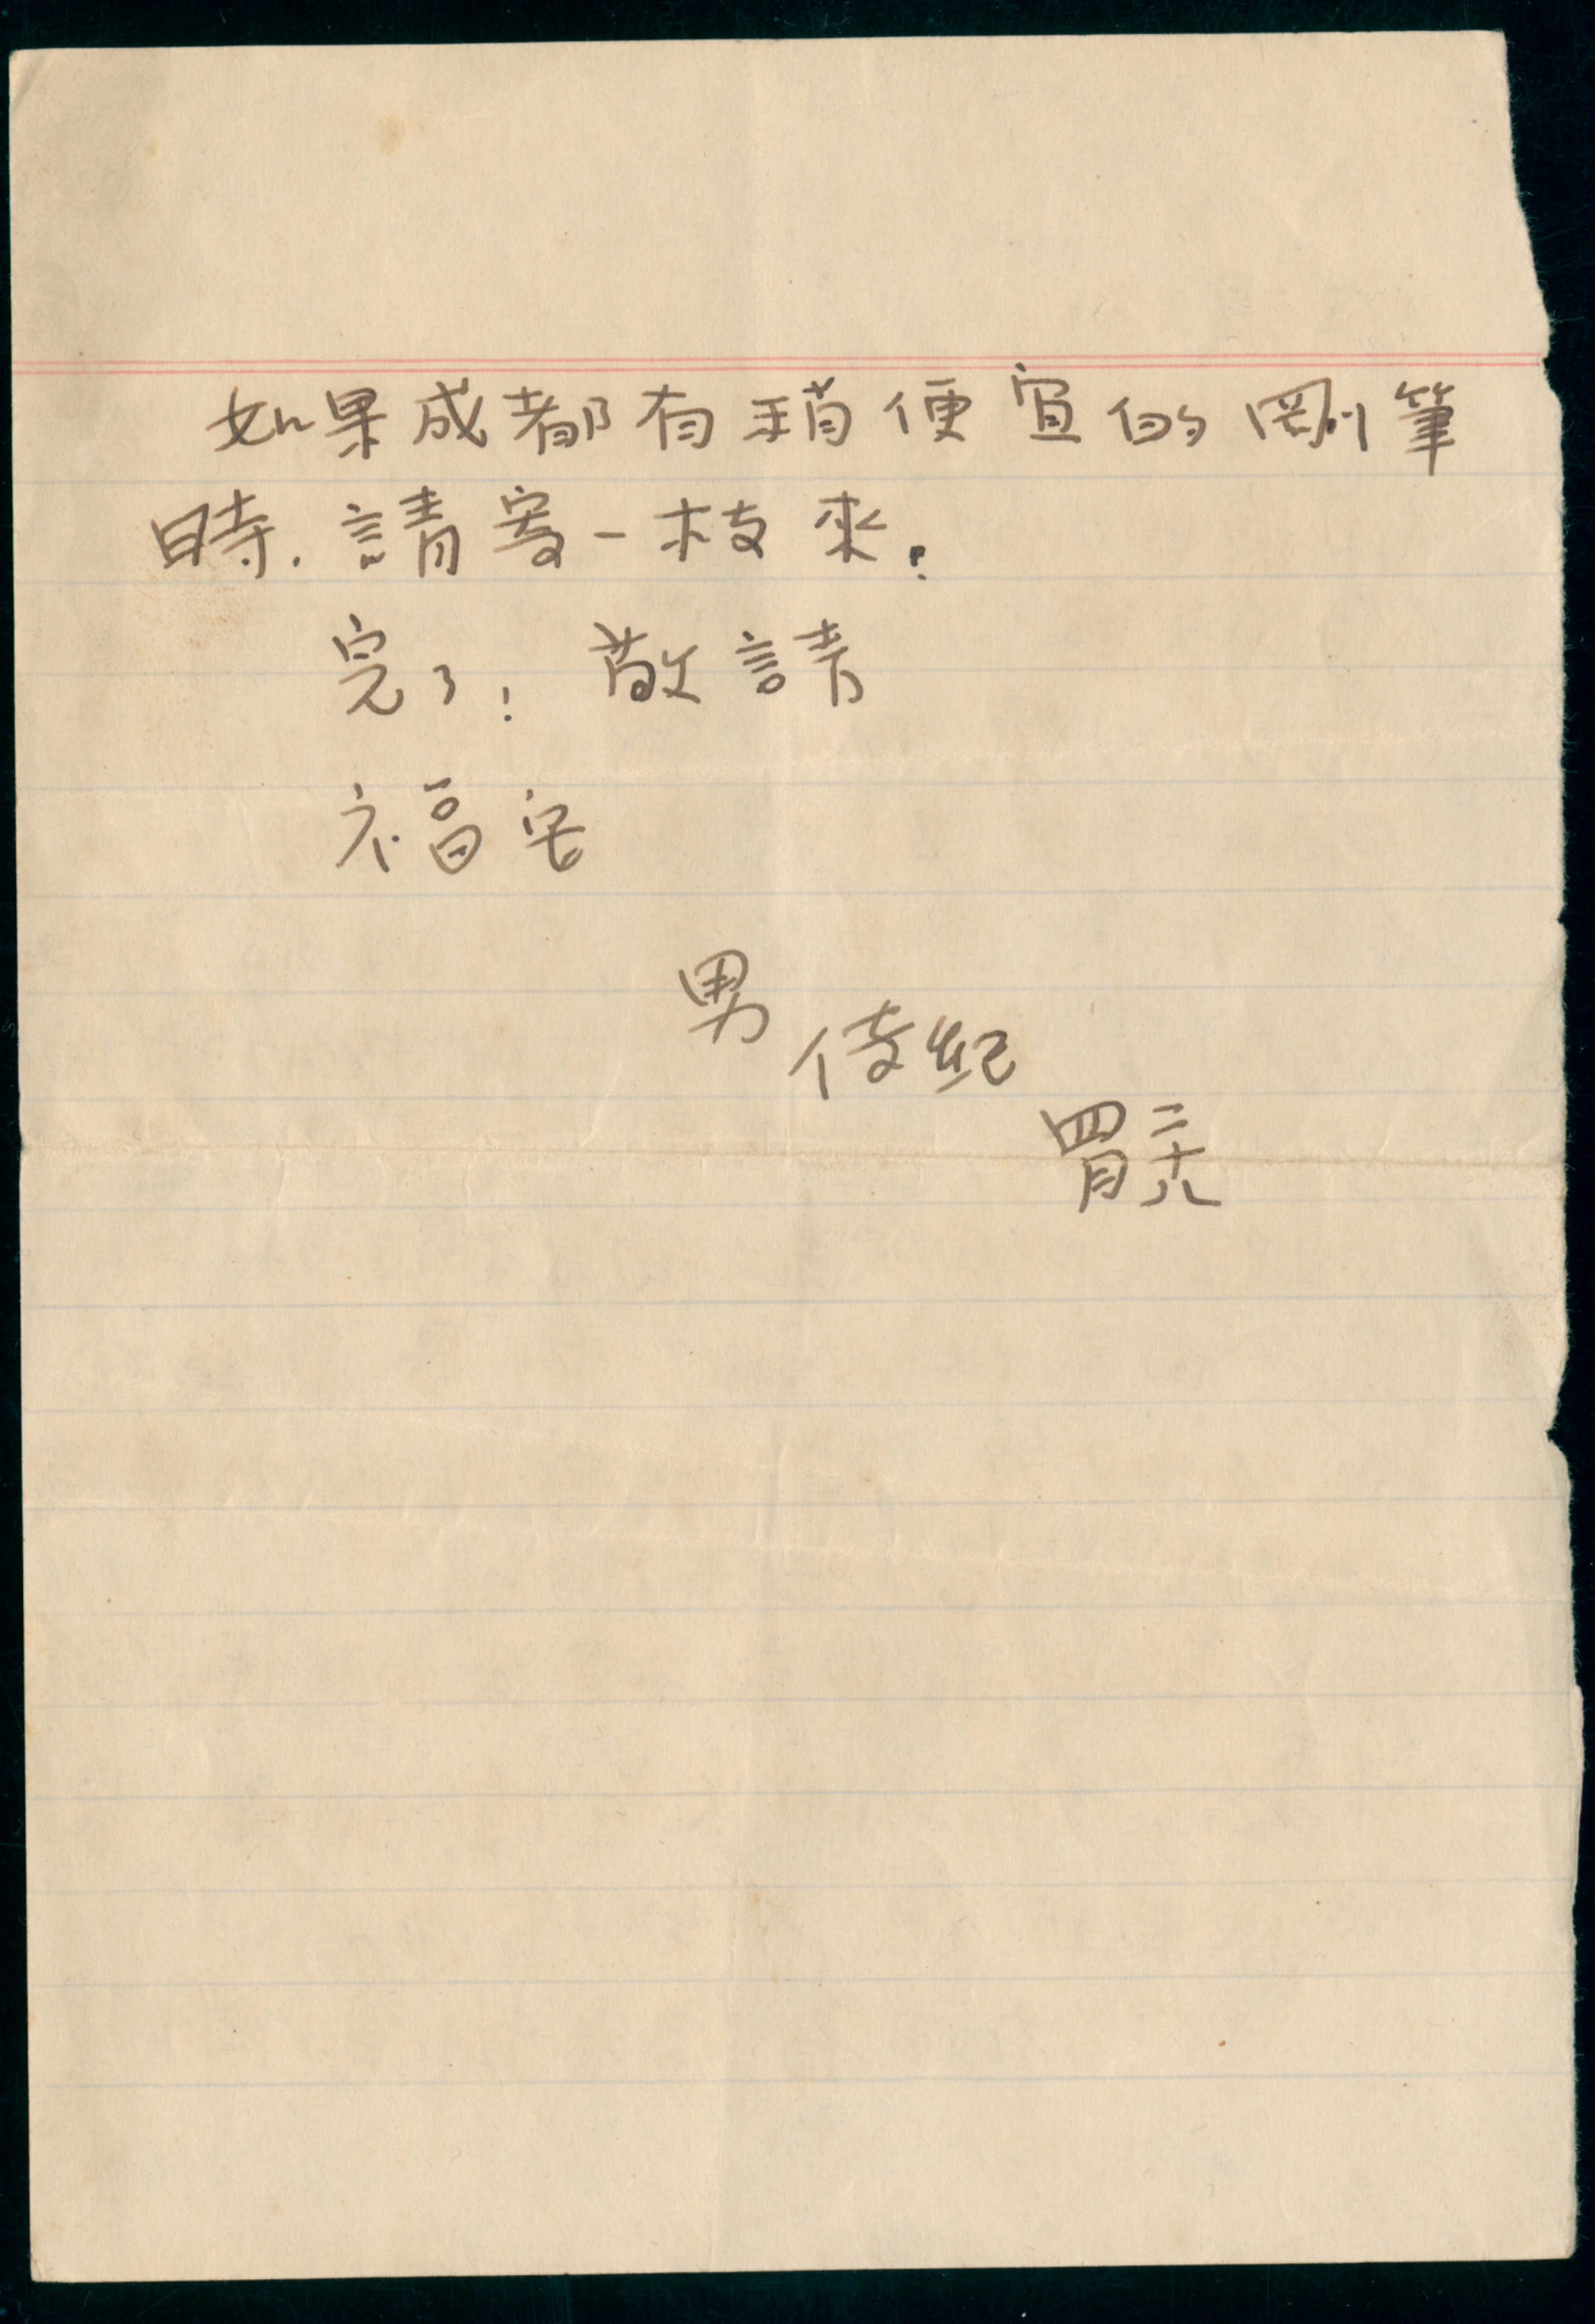 如果成都有稍便宜的剛筆
時.請寄一枝來.
完了!敬請
福安
男
紀
四月二十八